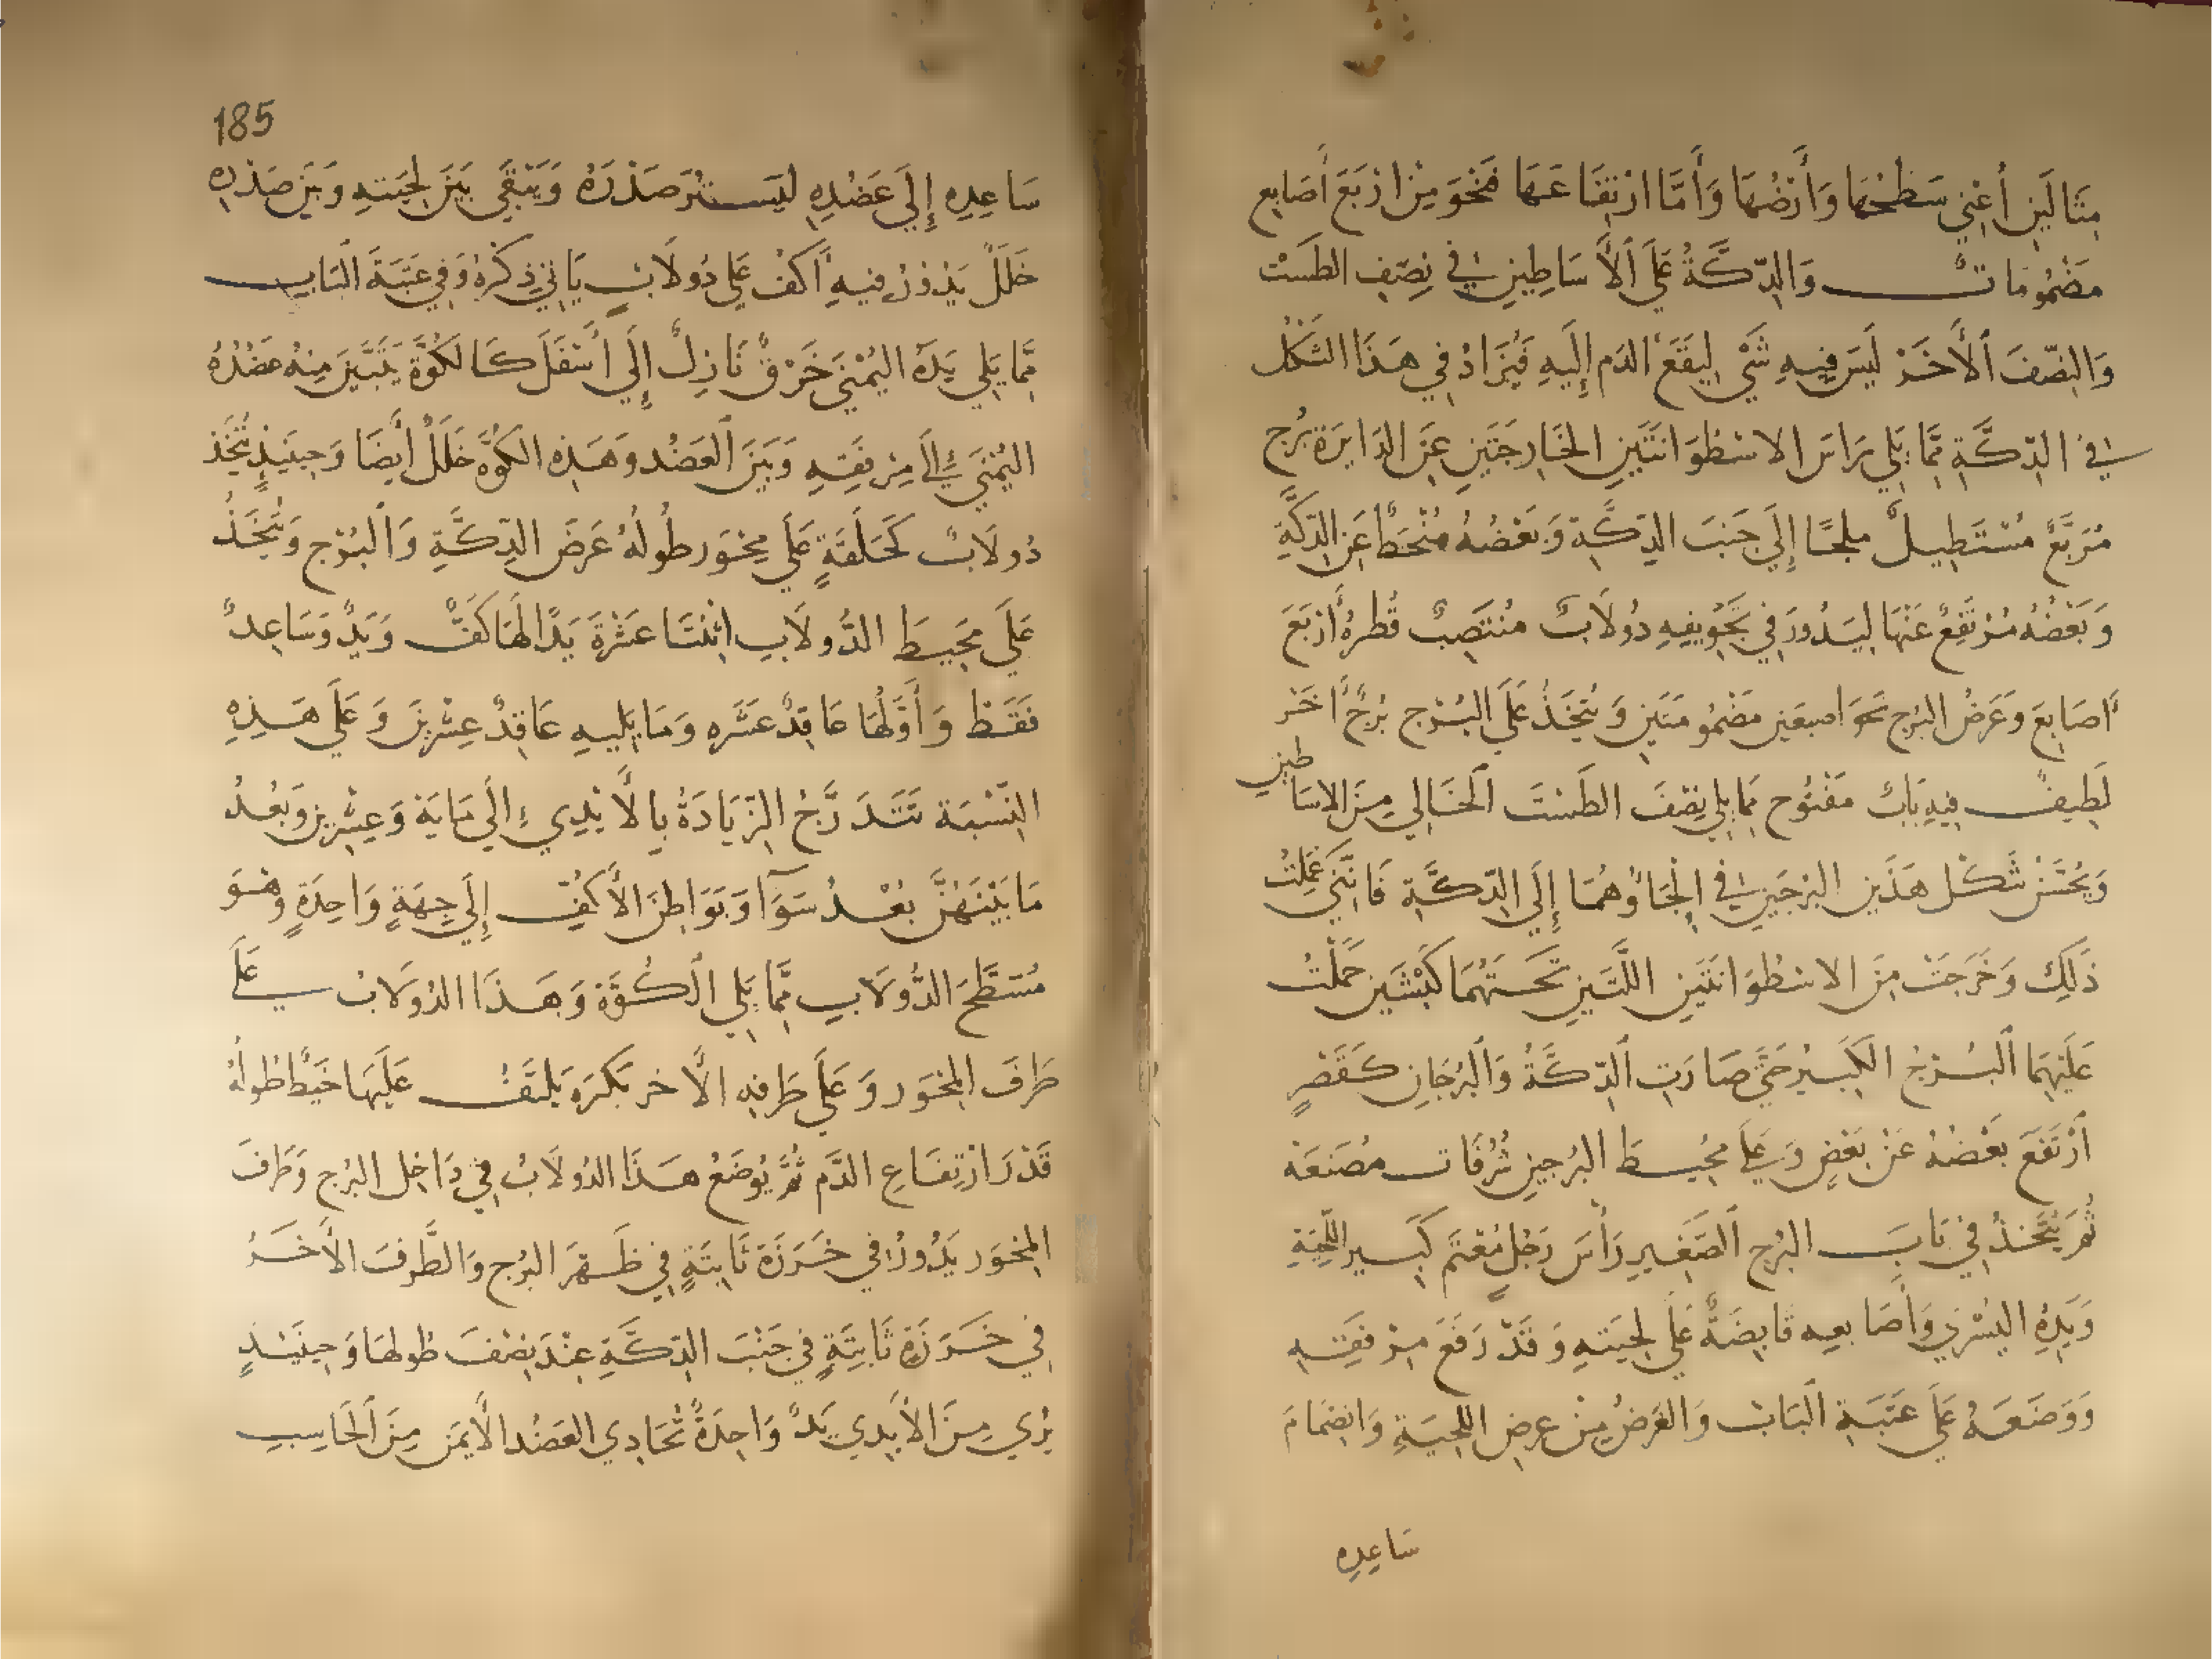 مِثَالَينِ أَعْنِي سَطْحُهَا وَأَرْضُهَا وَأَمَّا ارْتِفَاعهَا فَنَحْوَ مِنْ ارْبَعَ أَصَابِع
مَضْمُومَاتٌ وَالدِّكَّةُ عَلَى الأَسَاطِينِ فِي نِصْفِ الطَّسْت
وَالنِّصْفَ الأَخَرْ لَيسَ فِيهِ شَيْ لِيَقَعَ الدَم إِلَيهِ فَيُزَادُ فِي هَذَا الشَكْل
فِي الدِّكَّةِ مِمَّا يَلِي رَاسَ الاسْطُوَانَتَينِ الخَارِجَتَينِ عَنِ الدَايرَة بُرج
مُرَبَّعٌ مُسْتَطِيلٌ ملجًا إِلَى جَنبَ الدِكَّةِ وَبَعْضُهُ مُنْحَطٌ عَنِ الدِّكَّةِ
وَبَعْضُهُ مُرْتَفِعٌ عَنْهَا لِيَدُورَ فِي تَجْوِيفِهِ دُولَابٌ مُنْتَصِبٌ قُطرُهُ أَرْبَعَ
أَصَابِعَ وَعَرَضُ البُرج نَحوَ اصبعَينِ مَضْمُومَتَينِ وَيُتَّخَذُ عَلَى البُرج بُرجٌ أَخَر
لَطِيفٌ فِيهِ بَابٌ مَفتُوح مِمَا يَلِي نِصْفَ الطَسْتَ الخَالِي مِنَ الاسَاطين
وَيُحَسَّنُ شَكْل هَذَينِ البُرجَينِ فِي الجَاوُهُمَا إِلَى الدِّكَّةِ فَانِّنِي عَمِلتُ
ذَلِكَ وَخَرَجَتْ مِنَ الاسْطُوَانَتَينِ اللَّتَينِ تَحتَهُمَا كَبْشَينِ حَمَلْتُ
عَلَيهِمَا البُرْجُ الكَبيرُ حَتَّى صَارَتِ الدِّكَّةُ وَالبُرجَانِ كَقَصْرٍ
أرْتَفَعَ بَعْضُهُ عَنْ بَعْضٍ وَعَلَى مُحِيطَ البُرجينِ شُرُفَات مُصَنَعَة
ثُمَّ يُتَّخذُ فِي بَابَ البُرج الصَّغِيرِ رَأْسَ رَجُلٍ مُعْتَم كَبير اللِّحيَةِ
وَيَدِهِ اليُسْرَي وَأَصَابعِه قَابِضَةٌ عَلَى لِحيَتِهِ وَقَدْ رَفَعَ مِرْفَقِهِ
وَوَضَعَهُ عَلَى عَتَبَةِ البَابْ وَالغَرَضُ مِنْ عرضِ اللحيَةِ وَانضِمَامَ
سَاعِدِهِ
185
سَاعِدِهِ إِلَى عَضُدِهِ لِيَسْتُرَ صَدْرَهُ وَيَبْقَي بَينَ لِحيَتِهِ وَبَينَ صَدْرِهِ
خَلَلٌ يَدُورُ فِيهِ أَكفُ عَلَى دُولَابٍ يَاتِي ذِكرُهُ وَفِي عَتَبَةَ البَابِ
مِمَّا يَلِي يَدَهُ اليُمْنَى خَرْقٌ نَازِلٌ إِلَى أَسْفَلَ كَالكُوَّةَ يَتَبَيَّنَ مِنْهُ عَضُدُهُ
اليُمْنَي إِلَى مِرْفَقِهِ وَبَينَ العَضُد وَهَذِه الكُوَّة خَلَلٌ أَيْضَا وَحِينَيِذٍ يُتَّخَذُ
دُولَابٌ كَحَلَقَةٍ عَلَى مِحْوَر طُولُهُ عَرَضَ الدِّكَّةِ وَالبُرْج وَيُتَّخَذُ
عَلَى مُحِيطَ الدُّولَابِ اثْنَتَا عَشْرَةَ يَدًا لَهَا كَفٌّ وَيَدٌ وَسَاعِدٌ
فَقَطْ وَأَوَّلُهَا عَاقِدٌ عَشَره وَمَا يَلِيهِ عَاقِدٌ عِشْرِينَ وَعَلَى هَذِهِ
النِّسْبَة تَتَدَرَّجُ الزِّيَادَةُ بِالأَيْدِي إِلَى مَايَة وَعِشْرِينَ وَبُعْدُ
مَا بَيْنَهُنَّ بُعْدُ سَوَآ وَبَوَاطِنَ الأَكُفِّ إِلَى جِهَةٍ وَاحِدَةٍ وَهْوَ
مُسَطَّحَ الدُّولَابِ مِمَّا يَلِي الكُوَّةَ وَهَذَا الدُولَابْ عَلَى
طَرَفَ المِحْوَر وَعَلَى طَرَفِهِ الأَخر بَكرَه يَلتَفُ عَلَيهَا خَيطٌ طُولُهُ
قَدْرَ ارْتِفَاعِ الدَّم ثُمَّ يُوضَعُ هَذَا الدُولَابُ فِي دَاخِل البُرج وَطَرَفَ
المِحْوَر يَدُورُ فِي خَرَزَة ثَابِتَةٍ فِي ظَهرَ البُرج وَالطَّرفَ الأَخَرُ
فِي خَرَزَةِ ثَابِتَةٍ فِي جَنْبَ الدِّكَّةِ عِنْدَ نِصْفَ طُولهَا وَحِينَيْذٍ
يُرَي مِنَ الأَيدِي يَدٌ وَاحِدَةٌ تُحَاذِي العَضُد الأَيمَنِ مِنَ الحَاسِبِ